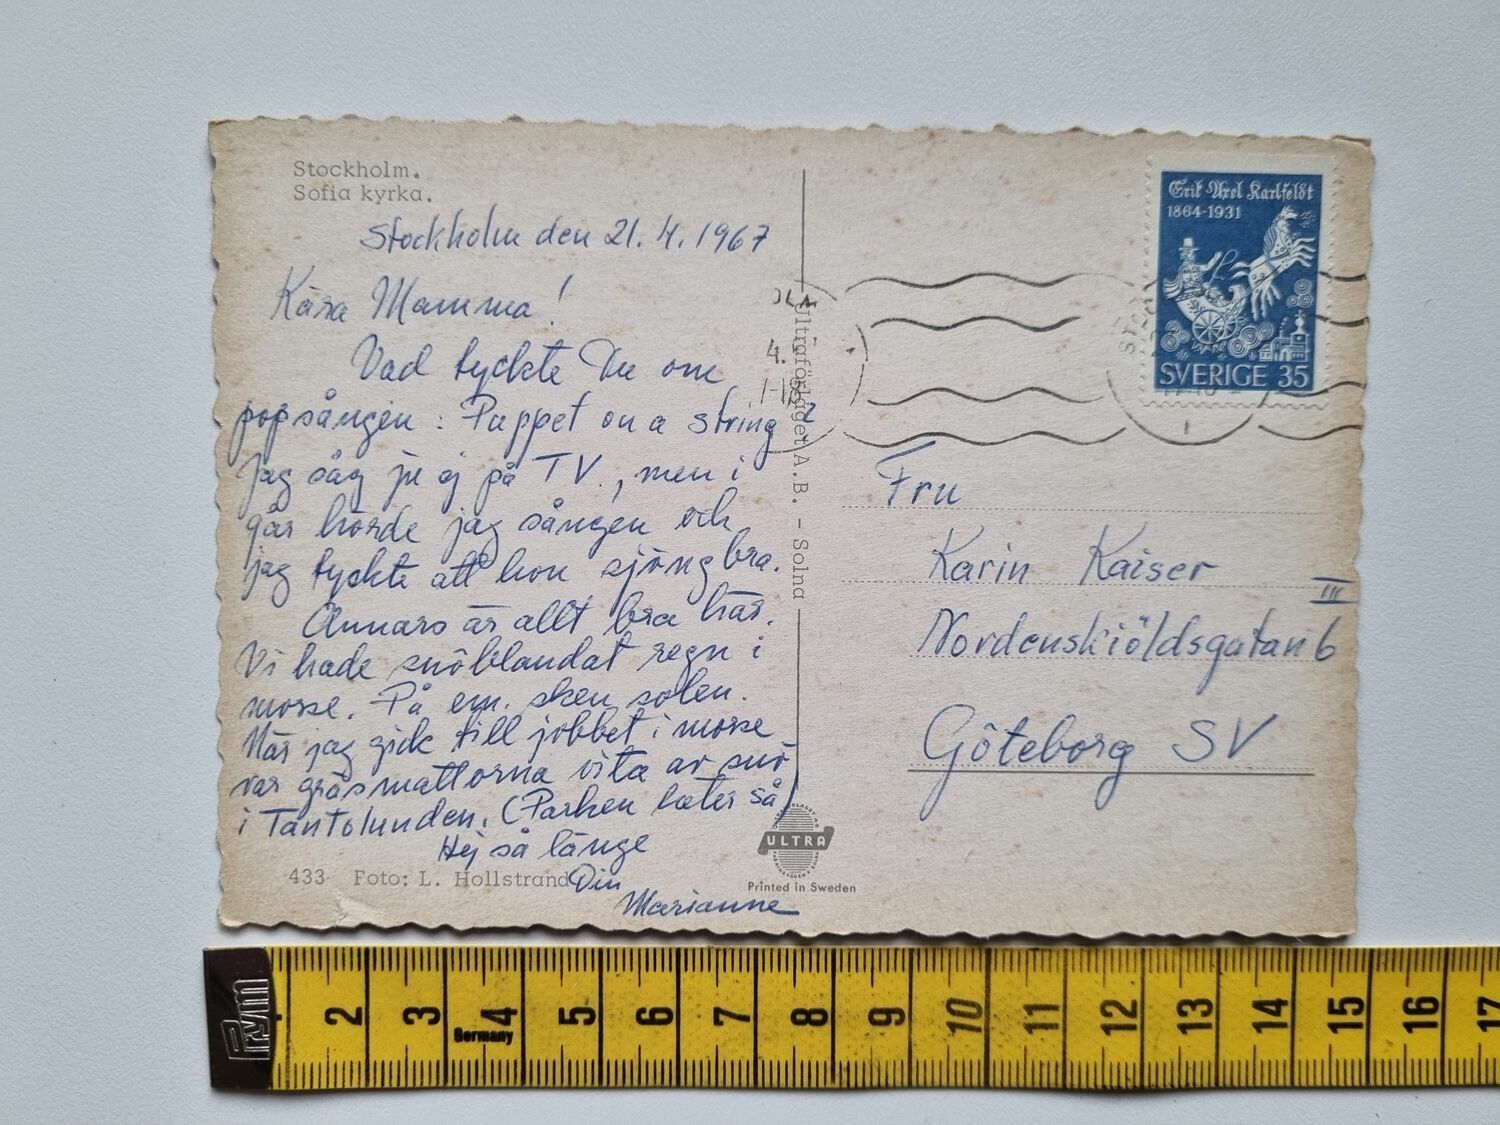 Stockholm.
Sofia kyrka.
Stockholm den 21.4.1967
Kära Mamma!
Vad tyckte Du om
popsången: Puppet on a string
Jag såg ju ej på TV., men i
går hörde jag sången och
jag tyckte att hon sjöng bra.
Annars är allt bra här.
Vi hade snöblandat regn i
morse. På em. sken solen.
När jag gick till jobbet i morse
var gräsmattorna vita av snö
i Tantolunden. (Parken heter så)
Hej så länge
Din
Marianne
433 Foto: L. Hollstrand
Ultraförlaget A.B. - Solna
ULTRA
Printed in Sweden
Erik Axel Karlfeldt
1864-1931
SVERIGE 35
Fru
Karin Kaiser
III
Nordenskiöldsgatan 6
Göteborg SV
Prym
Germany
2 3 4 5 6 7 8 9 10 11 12 13 14 15 16 17